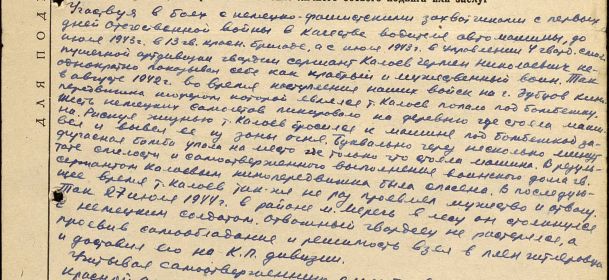 Участвуя в боях с немецко-фашистскими захватчиками с первых
дней Отечественной войны в качестве водителя автомашины, до
июля 1943г. в 13 гв. красн. бригаде, а с июля 1943г. в управлении 4 гвард.
пушечной артдивизии гвардии сержант Калоев Герман Николаевич не-
однократно показывал себе как храбрый и мужественный воин. Так
в августе 1942г. во время наступления наших войск на г. Зубцов кино-
передвижка шофером которой являлся т. Калоев попала под бомбежку.
Шесть немецких самолетов пикировало на деревню где стояла маши-
на. Рискуя жизнью т. Калоев бросился к машине под бомбежкой за-
вел и вывел ее из зоны огня. Буквально через несколько минут
фугасная бомба упала на место где только что стояла машина. В резуль-
тате смелости и самоотверженного выполнения воинского долга гв.
сержантом Калоевым кинопередвижка была спасена. В последую-
щее время т. Калоев так-же не раз проявлял мужество и отвагу.
Так 27 июля 1944г. в районе м. в лесу он столкнулся
с немецким солдатом. Отважный гвардеец не растерялся, а
проявив самообладание и решимость взял в плен гитлеровца
и доставил его на К.П. дивизии.
Учитывая самоотверженные
Красной
ДЛЯ ПОД